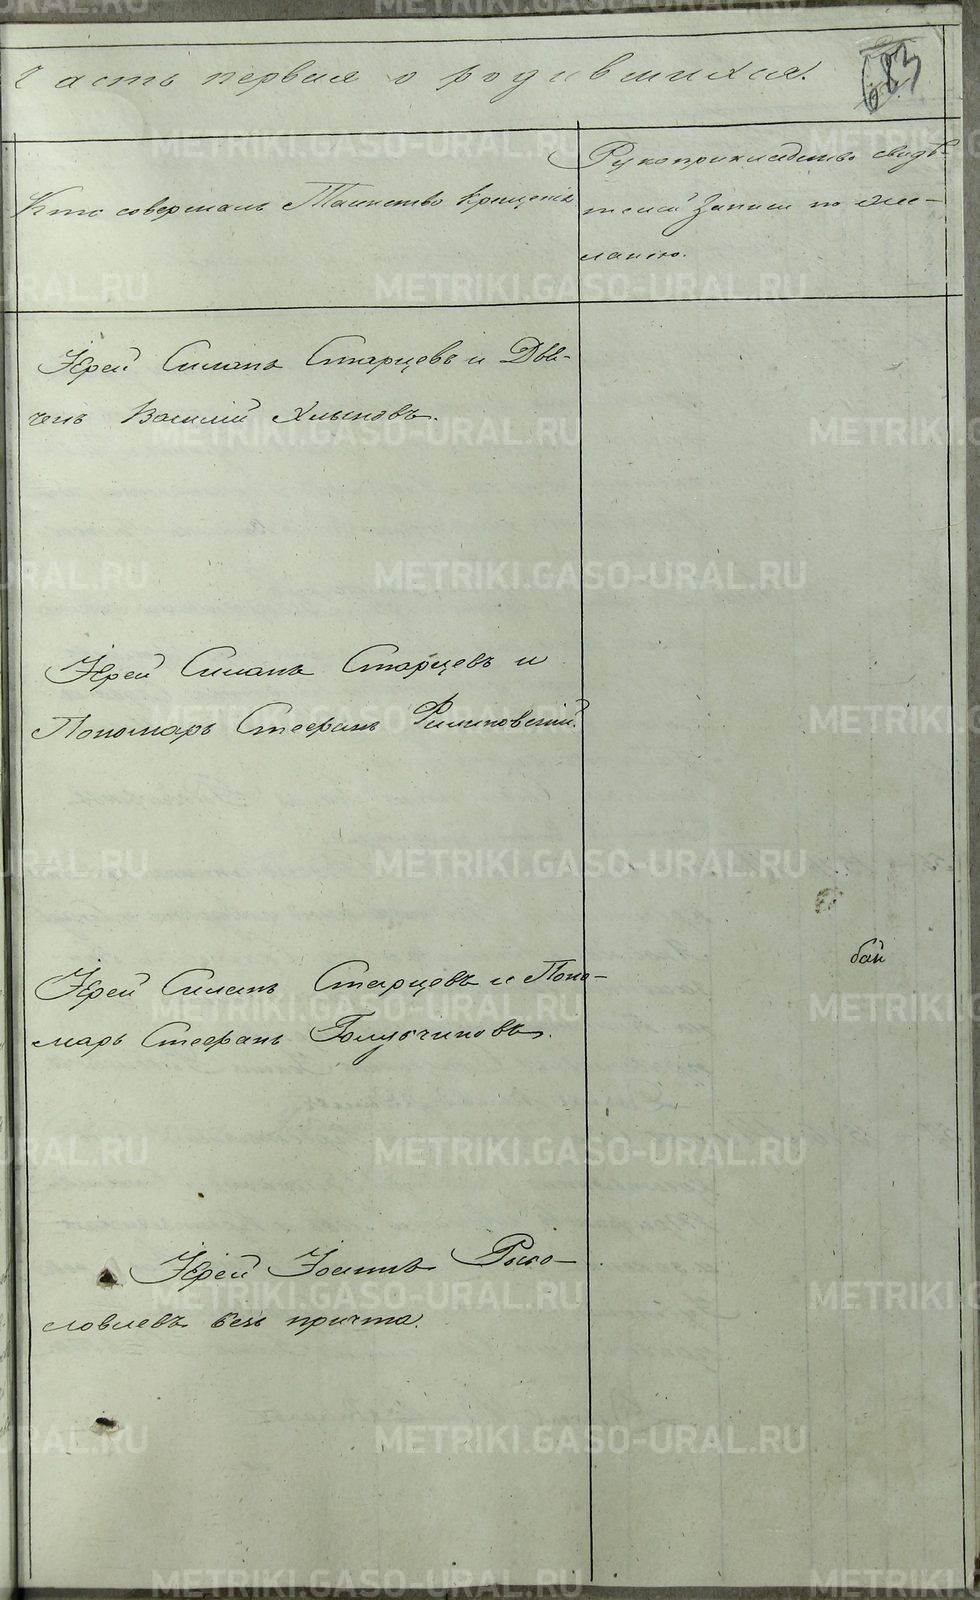 Часть первая о родившихся.
683
Кто совершалъ Таинство Крещенія
Рукоприкладство свидѣ-
телей записи по же-
ланію.
Іерей Силанъ Старцевъ и Дья-
чекъ Василій Хлыновъ.
Іерей Силанъ Старцевъ и
Пономарь Стефанъ Филиповскій.
бай
Іерей Силанъ Старцевъ и Поно-
марь Стефанъ Голубчиковъ.
Іерей Іоаннъ
безъ причта.
METRIKI.GASO-URAL.RU